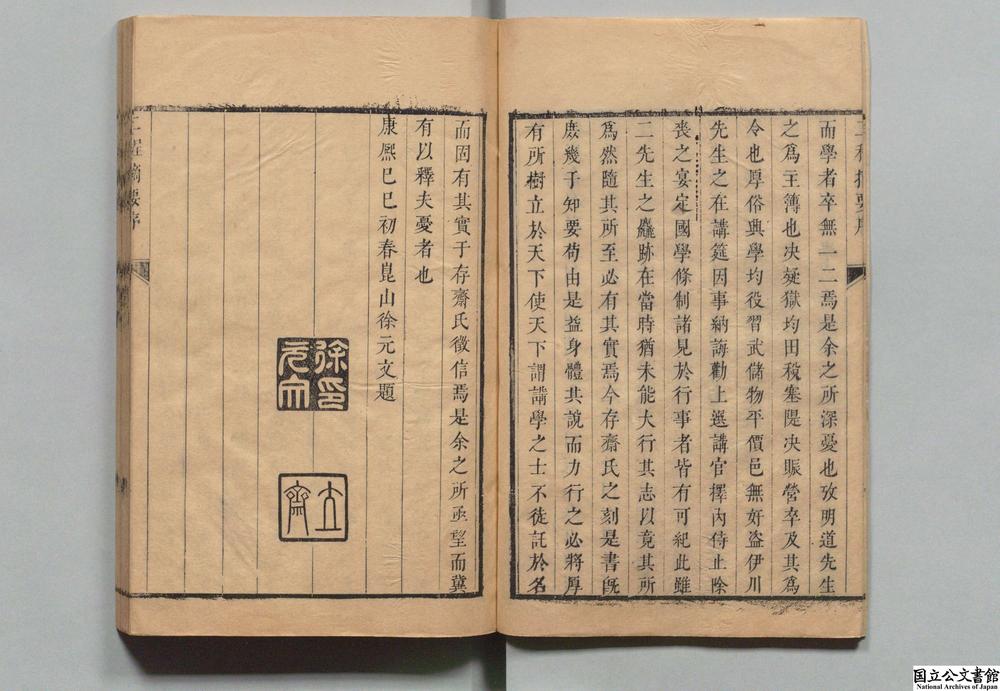 而學者卒無一二焉是余之所深憂也攷明道先生
之爲主簿也决疑獄均田稅塞隄决賑營卒及其爲
令也厚俗興學均役習武儲物平價邑無好盜伊川
先生之在講筵因事納誨勸上選講官擇內侍止除
喪之宴定國學條制諸見於行事者皆有可紀此雖
二先生之麤跡在當時猶未能大行其志以竟其所
爲然隨其所至必有其實焉今存齋氏之刻是書旣
庻幾于知要苟由是益身體其說而力行之必將厚
有所樹立於天下使天下謂講學之士不徒託於名
而固有其實于存齋氏徵信焉是余之所亟望而冀
有以釋夫憂者也
康熈己巳初春崑山徐元文題
徐元文印
立齋
二程摘要序
国立公文書館
National Archives of Japan